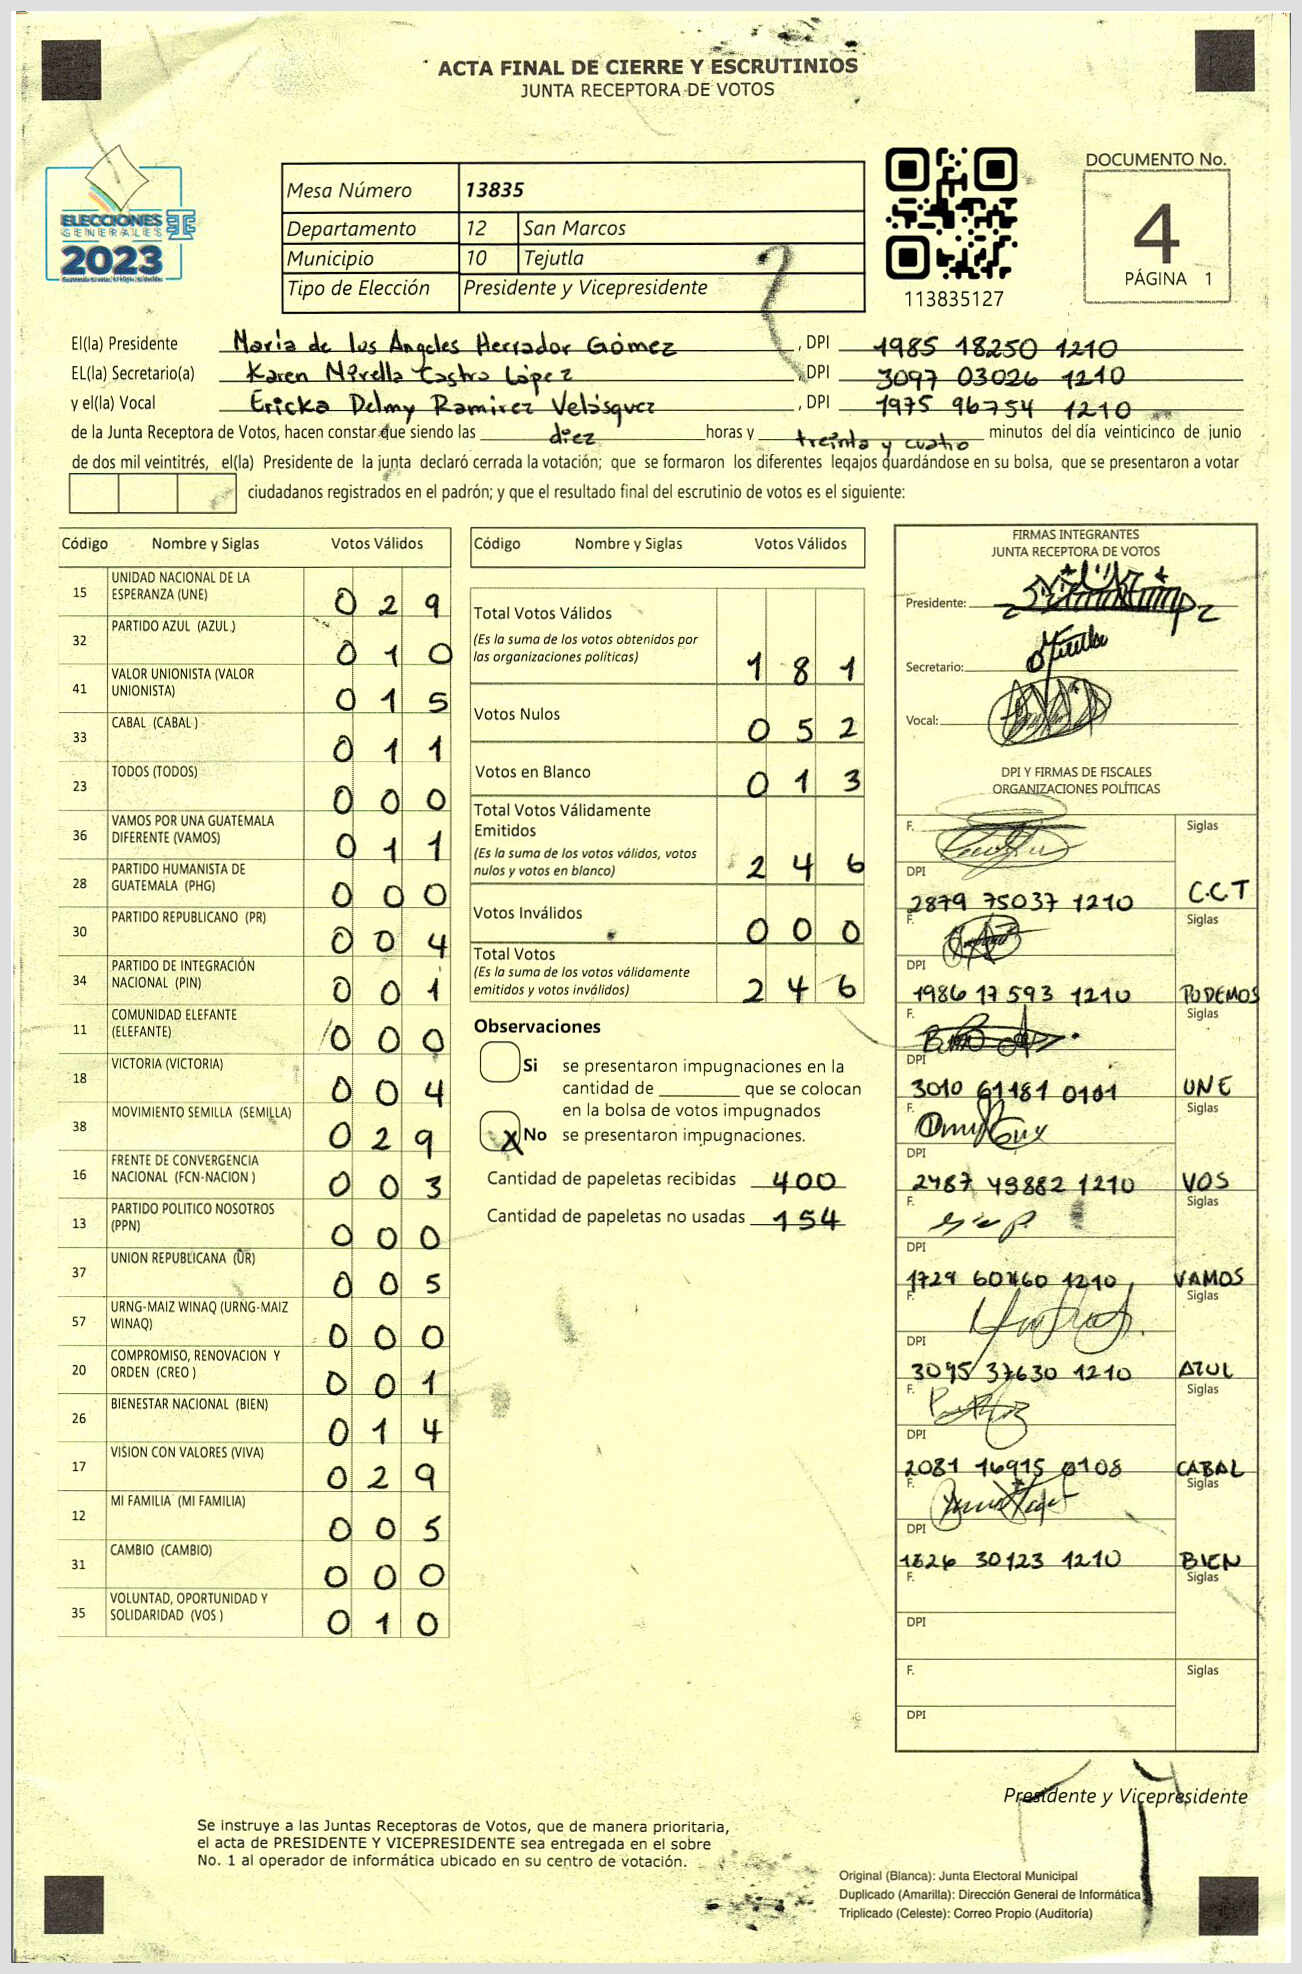 ACTA FINAL DE CIERRE Y ESCRUTINIOS
JUNTA RECEPTORA DE VOTOS
ELECCIONES
GENERALES
2023
Mesa Número 13835
Departamento 12 San Marcos
Municipio 10 Tejutla
Tipo de Elección Presidente y Vicepresidente
113835127
DOCUMENTO No.
4
PÁGINA 1
El(la) Presidente María de los Angeles Herrador Gómez, DPI 1985 18250 1210
EL(la) Secretario(a) Karen Mirella Castro López, DPI 3097 03026 1210
y el(la) Vocal Ericka Delmy Ramirez Velásquez, DPI 1975 96754 1210
de la Junta Receptora de Votos, hacen constar que siendo las diez horas y treinta y cuatro minutos del día veinticinco de junio
de dos mil veintitrés, el(la) Presidente de la junta declaró cerrada la votación; que se formaron los diferentes legajos guardándose en su bolsa, que se presentaron a votar
ciudadanos registrados en el padrón; y que el resultado final del escrutinio de votos es el siguiente:
Código Nombre y Siglas Votos Válidos
15 UNIDAD NACIONAL DE LA ESPERANZA (UNE) 029
32 PARTIDO AZUL (AZUL.) 010
41 VALOR UNIONISTA (VALOR UNIONISTA) 015
33 CABAL (CABAL ) 011
23 TODOS (TODOS) 000
36 VAMOS POR UNA GUATEMALA DIFERENTE (VAMOS) 011
28 PARTIDO HUMANISTA DE GUATEMALA (PHG) 000
30 PARTIDO REPUBLICANO (PR) 004
34 PARTIDO DE INTEGRACIÓN NACIONAL (PIN) 001
11 COMUNIDAD ELEFANTE (ELEFANTE) 000
18 VICTORIA (VICTORIA) 004
38 MOVIMIENTO SEMILLA (SEMILLA) 029
16 FRENTE DE CONVERGENCIA NACIONAL (FCN-NACION ) 003
13 PARTIDO POLITICO NOSOTROS (PPN) 000
37 UNION REPUBLICANA (UR) 005
57 URNG-MAIZ WINAQ (URNG-MAIZ WINAQ) 000
20 COMPROMISO, RENOVACION Y ORDEN (CREO ) 001
26 BIENESTAR NACIONAL (BIEN) 014
17 VISION CON VALORES (VIVA) 029
12 MI FAMILIA (MI FAMILIA) 005
31 CAMBIO (CAMBIO) 000
35 VOLUNTAD, OPORTUNIDAD Y SOLIDARIDAD (VOS ) 010
Código Nombre y Siglas Votos Válidos
Total Votos Válidos
(Es la suma de los votos obtenidos por
las organizaciones políticas) 181
Votos Nulos 052
Votos en Blanco 013
Total Votos Válidamente
Emitidos
(Es la suma de los votos válidos, votos
nulos y votos en blanco) 246
Votos Inválidos 000
Total Votos
(Es la suma de los votos válidamente
emitidos y votos inválidos) 246
Observaciones
Si se presentaron impugnaciones en la
cantidad de ________ que se colocan
en la bolsa de votos impugnados
X No se presentaron impugnaciones.
Cantidad de papeletas recibidas 400
Cantidad de papeletas no usadas 154
FIRMAS INTEGRANTES
JUNTA RECEPTORA DE VOTOS
Presidente:
Secretario:
Vocal:
DPI Y FIRMAS DE FISCALES
ORGANIZACIONES POLÍTICAS
F. Siglas
DPI 2879 75037 1210 C.C.T
F. Siglas
DPI 1986 17593 1210 PODEMOS
F. Siglas
DPI 3010 61181 0101 UNE
F. Siglas
DPI 2487 49882 1210 VOS
F. Siglas
DPI 1729 1210 VAMOS
F. Siglas
DPI 3095 37630 1210 AZUL
F. Siglas
DPI 2081 16915 0108 CABAL
F. Siglas
DPI 1826 30123 1210 BIEN
F. Siglas
DPI
F. Siglas
DPI
Presidente y Vicepresidente
Se instruye a las Juntas Receptoras de Votos, que de manera prioritaria,
el acta de PRESIDENTE Y VICEPRESIDENTE sea entregada en el sobre
No. 1 al operador de informática ubicado en su centro de votación.
Original (Blanca): Junta Electoral Municipal
Duplicado (Amarilla): Dirección General de Informática
Triplicado (Celeste): Correo Propio (Auditoría)